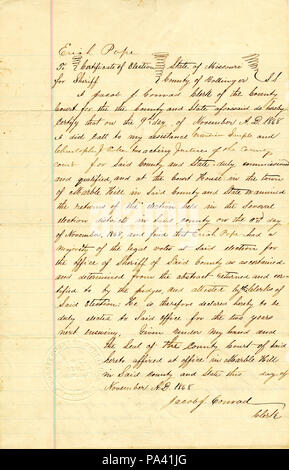 Erich Pope
To Certificate of Election State of Missouri
for Sheriff County of Bollinger S.S
I Jacob J Conrad Clerk of the County
Court for the the County and State aforesaid do hereby
Certify that on the 9th day of November A.D. 1868
I did call to my assistance
Justices of the County
court for Said County and State duly commissioned
and qualified, and at the Court House in the town
of Marble Hill in Said County and State examined
the returns of the election held in the Several
election districts in Said County on the 3rd day
of November, 1868, and find that Erich Pope had a
majority of the legal votes at Said election for
the office of Sheriff of Said County as ascertained
and determined from the abstract returned and cer-
tified to by the judges, and attested by Clerks of
Said election. He is therefore declared hereby to be
duly elected to Said office for the two years
next ensuing. Given under my hand and
the Seal of the County Court of Said
hereto affixed at office in Marble Hill
in Said County and State this day of
November A.D. 1868
Jacob J. Conrad
Clerk
alamy
PA41JG
www.alamy.com